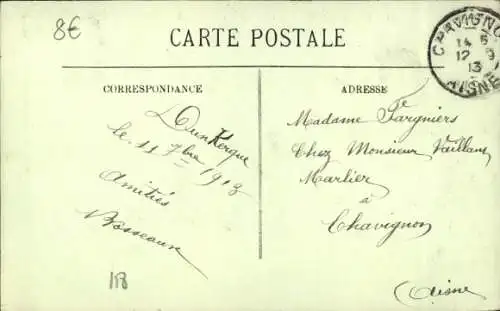 8€
CARTE POSTALE
CHAVIGNO
14 5
12 9
13
AISNE
CORRESPONDANCE
ADRESSE
Dunkerque
le 11 7bre 1913
Amitiés
Madame Fargniers
Chez Monsieur Vaillant
Marlier
à
Chavignon
Aisne